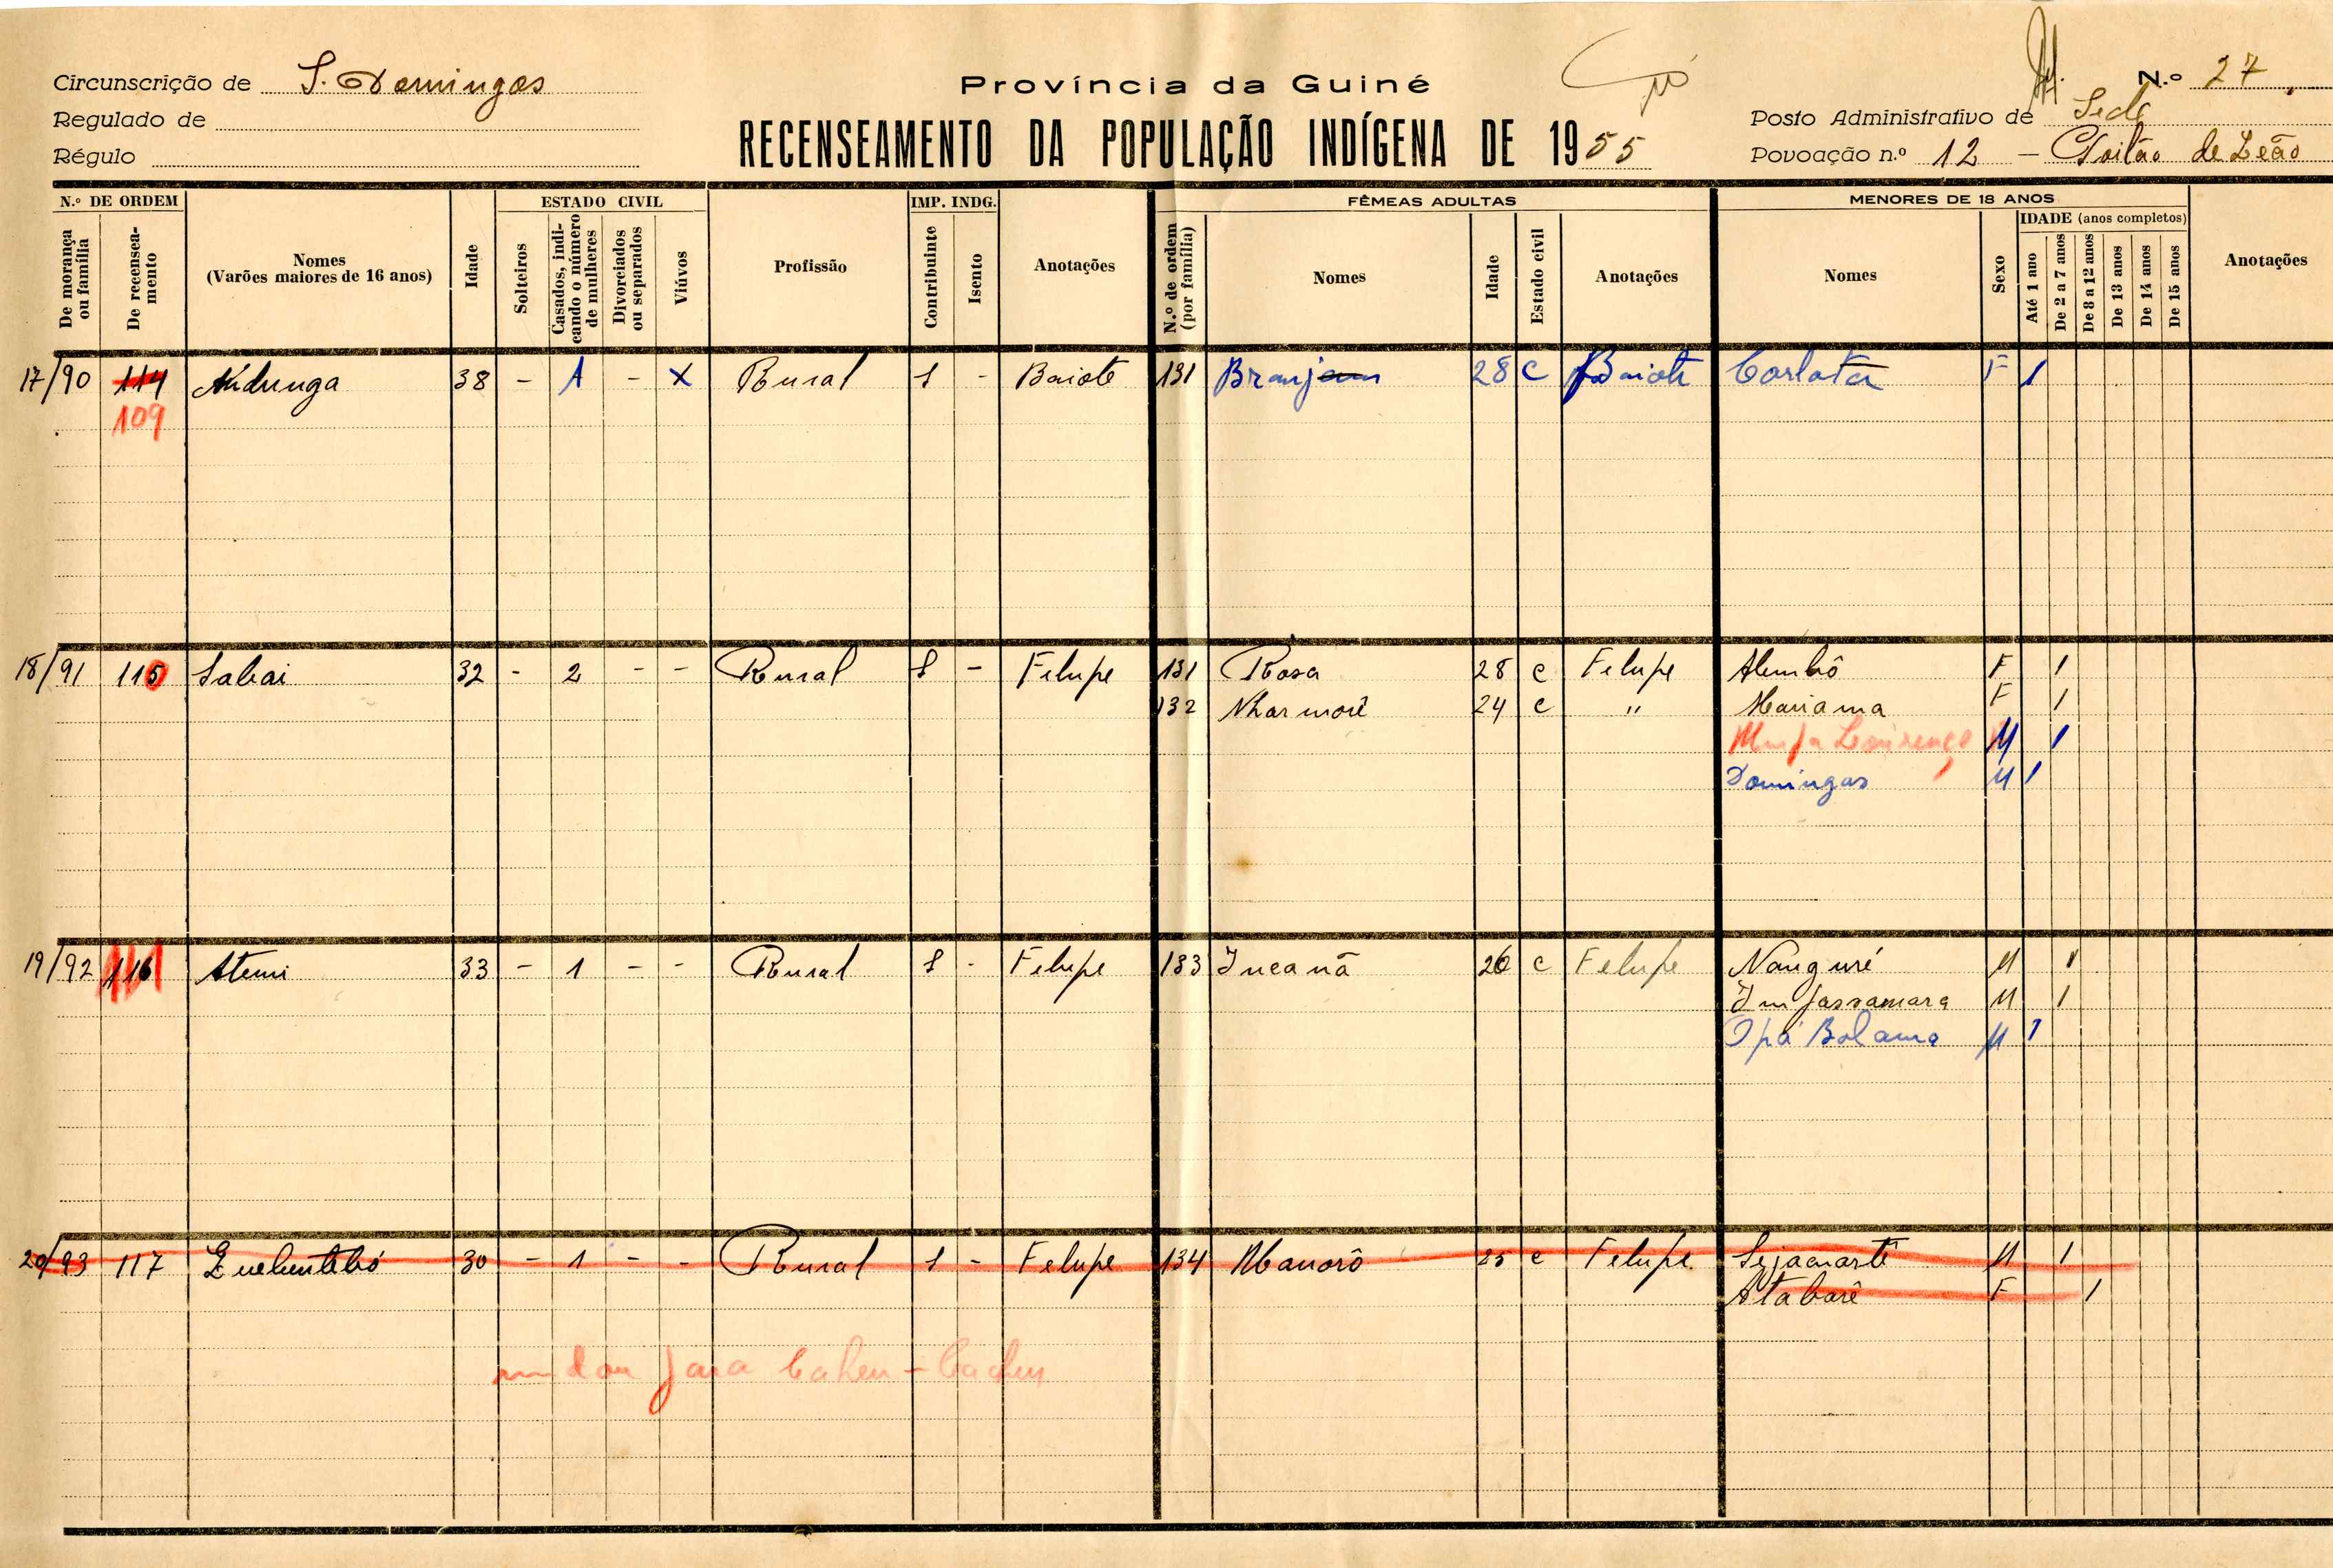 Circunscrição de S. Domingos
Regulado de
Régulo
Província da Guiné
RECENSEAMENTO DA POPULAÇÃO INDÍGENA DE 1955
N.º 27
Posto Administrativo de Sede
Povoação n.º 12 — Poilão de Leão
N.º DE ORDEM
De morança ou família
De recenseamento
Nomes
(Varões maiores de 16 anos)
Idade
ESTADO CIVIL
Solteiros
Casados, indicando o número de mulheres
Divorciados ou separados
Viúvos
Profissão
IMP. INDG.
Contribuinte
Isento
Anotações
FÊMEAS ADULTAS
N.º de ordem (por família)
Nomes
Idade
Estado civil
Anotações
MENORES DE 18 ANOS
Nomes
Sexo
IDADE (anos completos)
Até 1 ano
De 2 a 7 anos
De 8 a 12 anos
De 13 anos
De 14 anos
De 15 anos
Anotações
17/90 114 38 - 1 - X Rural 1 - Baiote 131 28 C Baiote Carlota F 1
109
18/91 115 Sabai 32 - 2 - - Rural 1 - Felupe 131 Rosa 28 c Felupe Alembô F 1
132 Nharmorê 24 c " Mariama F 1
Lourenço M 1
Domingas M 1
19/92 116 Atemi 33 - 1 - - Rural 1 - Felupe 133 Jucanã 26 c Felupe Nanguré M 1
Jassamara M 1
Opá Bolama M 1
20/93 117 30 - 1 - - Rural 1 - Felupe 134 Manorô 25 c Felupe Sejamarte M 1
Atabarê F 1
mudou para - Cacheu